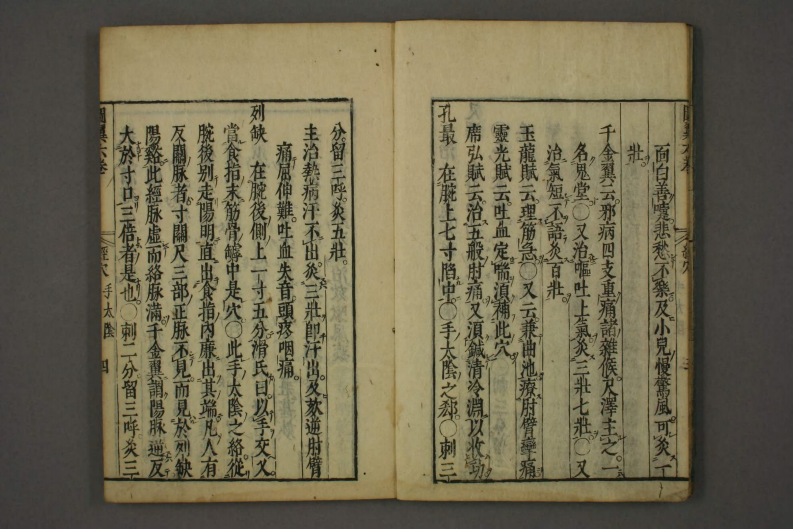 面白善嚏悲愁不樂及小兒慢驚風可灸一
壯
千金翼云邪病四支重痛諸雜候尺澤主之一
名鬼堂○又治嘔吐上氣灸三壯七壯○又
治氣短不語灸百壯
玉龍賦云理筋急○又云兼曲池療肘臂攣痛
靈光賦云吐血定喘須補此穴
席弘賦云治五般肘痛又須鍼清冷淵以收功
孔最 在腕上七寸陷中○手太陰之郄○刺三
分留三呼灸五壯
主治熱病汗不出灸三壯即汗出及欬逆肘臂
痛屈伸難吐血失音頭疼咽痛
列缺 在腕後側上一寸五分滑氏曰以手交叉
當食指末筋骨罅中是穴○此手太陰之絡從
腕後別走陽明直出食指內廉出其端凡人有
反關脉者寸關尺三部正脉不見而見於列缺
陽谿此經脉虛而絡脉滿千金翼謂陽脉逆反
大於寸口三倍者是也○刺二分留三呼灸三
圖翼六卷 經穴 手太陰 四